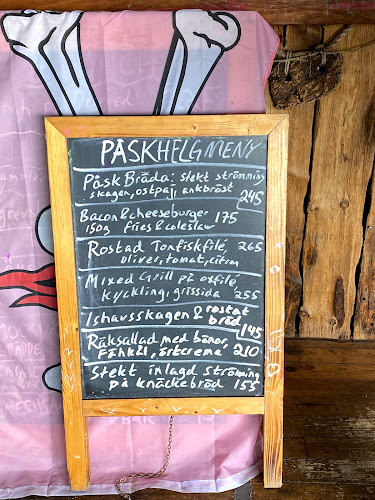 PÅSKHELGMENY
Påsk Bräda: stekt strömming
skagen, ostpaj, ankbröst
245
Bacon & cheeseburger 175
150g fries & coleslaw
Rostad Tonfiskfilé, 265
oliver, tomat, citron
Mixed Grill på oxfilé,
kyckling, grissida 255
Ishavsskagen & rostat
bröd 145
Räksallad med bönor,
Fänkål, örtcreme 210
Stekt inlagd strömming
på knäckebröd 155